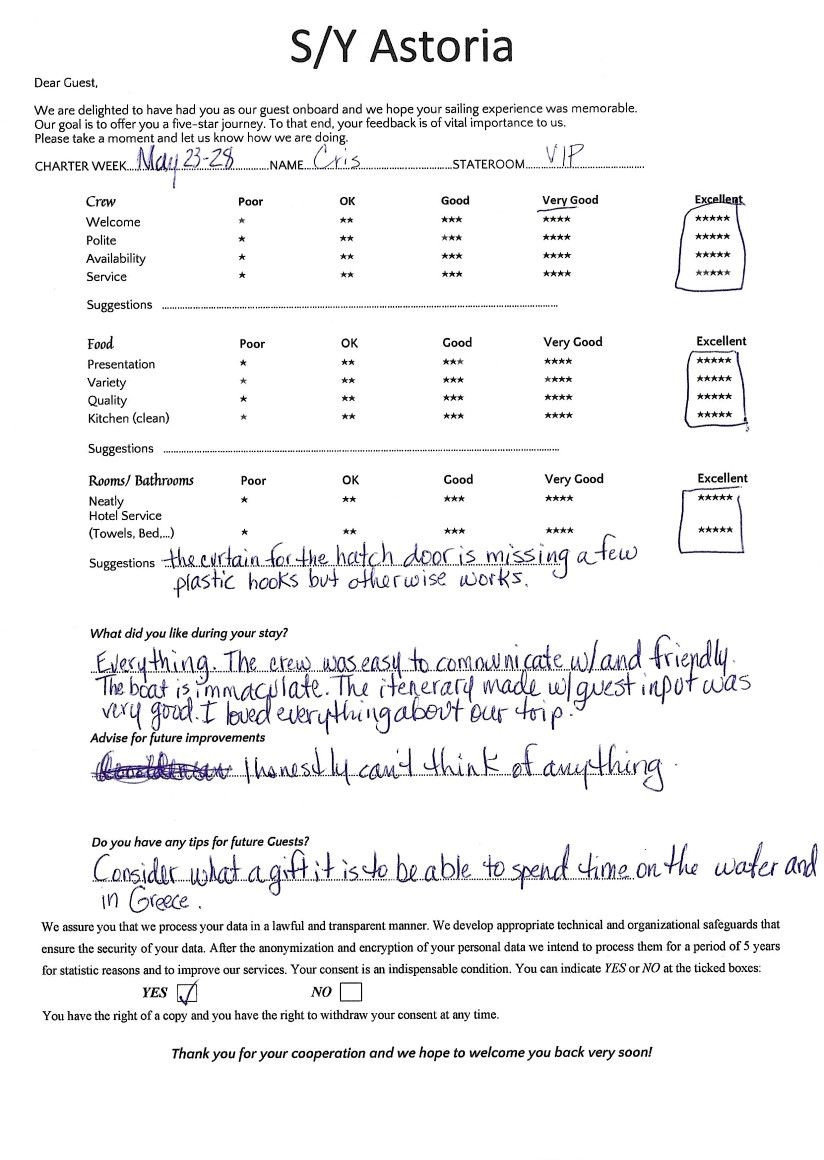 S/Y Astoria
Dear Guest,
We are delighted to have had you as our guest onboard and we hope your sailing experience was memorable.
Our goal is to offer you a five-star journey. To that end, your feedback is of vital importance to us.
Please take a moment and let us know how we are doing.
CHARTER WEEK...May 23-28...NAME...Cris...STATEROOM...VIP...
Crew Poor OK Good Very Good Excellent
Welcome ★ ★★ ★★★ ★★★★ ★★★★★
Polite ★ ★★ ★★★ ★★★★ ★★★★★
Availability ★ ★★ ★★★ ★★★★ ★★★★★
Service ★ ★★ ★★★ ★★★★ ★★★★★
Suggestions
Food Poor OK Good Very Good Excellent
Presentation ★ ★★ ★★★ ★★★★ ★★★★★
Variety ★ ★★ ★★★ ★★★★ ★★★★★
Quality ★ ★★ ★★★ ★★★★ ★★★★★
Kitchen (clean) ★ ★★ ★★★ ★★★★ ★★★★★
Suggestions
Rooms/ Bathrooms Poor OK Good Very Good Excellent
Neatly ★ ★★ ★★★ ★★★★ ★★★★★
Hotel Service
(Towels, Bed,...) ★ ★★ ★★★ ★★★★ ★★★★★
Suggestions the curtain for the hatch door is missing a few
plastic hooks but otherwise works.
What did you like during your stay?
Everything. The crew was easy to communicate w/ and friendly.
The boat is immaculate. The itenerary made w/ guest input was
very good. I loved everything about our trip.
Advise for future improvements
I honestly can't think of anything.
Do you have any tips for future Guests?
Consider what a gift it is to be able to spend time on the water and
in Greece.
We assure you that we process your data in a lawful and transparent manner. We develop appropriate technical and organizational safeguards that
ensure the security of your data. After the anonymization and encryption of your personal data we intend to process them for a period of 5 years
for statistic reasons and to improve our services. Your consent is an indispensable condition. You can indicate YES or NO at the ticked boxes:
YES ☑ NO ☐
You have the right of a copy and you have the right to withdraw your consent at any time.
Thank you for your cooperation and we hope to welcome you back very soon!